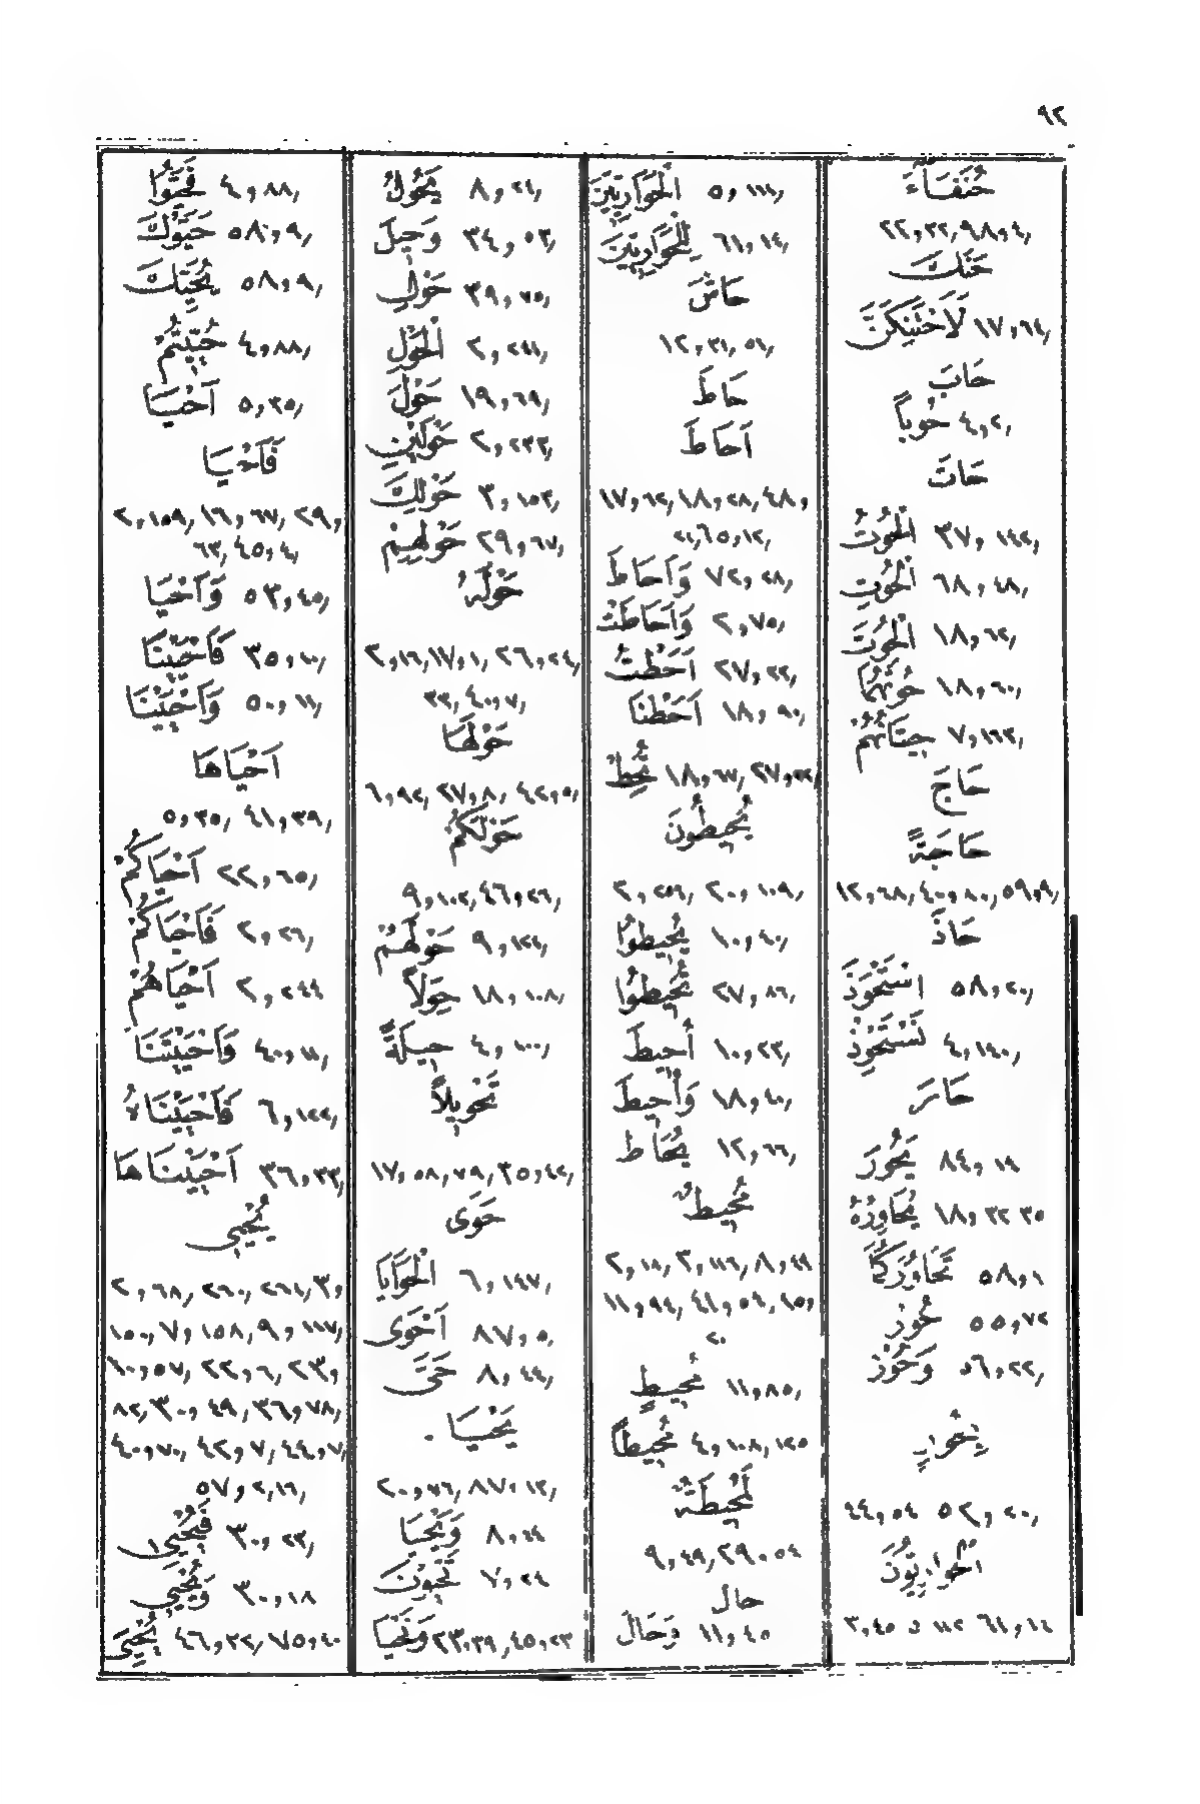 ٩٢
حُنَفَاءَ
٢٢,٣٢,٩٨,٤,
حَنَكَ
لَاَحْتَنِكَنَّ ١٧,٦٤,
حَابَ
حُوباً ٤,٢,
حَاتَ
اَلْحُوتُ ٣٧, ١٤٢,
اَلْحُوتِ ٦٨,٤٨,
اَلْحُوتَ ١٨,٦٢,
حُوتَهُمَا ١٨,٦٠,
حِيتَانُهُمْ ٧,١٦٣,
حَاجَ
حَاجَةً
١٢,٦٨,٤٠,٨٠,٥٩,٩,
حَاذَ
اِسْتَحْوَذَ ٥٨,٢٠,
نَسْتَحْوِذْ ٤,١٤٠,
حَارَ
يَحُورَ ٨٤ ,١٤
يُحَاوِرُهُ ١٨,٣٤ ٣٥
تَحَاوُرَكُمَا ٥٨,١
حُورٌ ٥٥,٧٢
وَحُورٌ ٥٦,٢٢,
بِحُورٍ
٤٤,٥٤ ٥٢, ٢٠,
اَلْحَوَارِيُّونَ
٣,٥٠ ٥ ١١٢ ٦١,١٤
اَلْحَوَارِيّٖنَ ٥,١١١,
لِلْحَوَارِيّٖنَ ٦١,١٤,
حَاشَ
١٢,٣١,٥١,
حَاطَ
اَحَاطَ
١٧,٦٠,١٨,٢٨,٤٨,
٢١,٦٥,١٢,
وَاَحَاطَ ٧٢,٢٨,
وَاَحَاطَتْ ٢,٧٥,
اَحَطْتُ ٢٧,٢٢,
اَحَطْنَا ١٨,٩٠,
تُحِطْ ١٨,٦٧,٢٧,٢٢,
يُحيطُونَ
٢,٢٥٦, ٢٠,١٠٩,
يُحيطُوا ١٠,٤٠,
تُحيطُوا ٢٧,٨٦,
اُحيطَ ١٠,٢٣,
وَاُحيطَ ١٨,٤٠,
يُحَاطَ ١٢,٦٦,
مُحيطٌ
٢,١٨, ٣,١١٦, ٨,٤٤
١١,٩٤, ٤١,٥٤, ٨٥,
٢٠
مُحيطٍ ١١,٨٥,
مُحيطاً ٤,١٠٨,١٢٥
لَمُحيطَةٌ
٩,٤٩,٢٩,٥٤
حال
وَحَالَ ١١,٤٥
يَحُولُ ٨,٢٤,
وَحيلَ ٣٤,٥٣,
حَوْلِ ٣٩,٧٥,
اَلْحَوْلِ ٢,٢٤١,
حَوْلَ ١٩,٦٩,
حَوْلَيْنِ ٢,٢٣٣,
حَوْلِكَ ٣,١٥٣,
حَوْلِهِمْ ٢٩,٦٧,
حَوْلَهُ
٢,١٦,١٧,١, ٢٦,٢٤,
٣٣,٤٠,٧,
حَوْلَهَا
٦,٩٢, ٢٧,٨, ٤٢,٥,
حَوْلَكُمْ
٩,١٠٢,٤٦,٢٦,
حَوْلَهُمْ ٩,١٢١,
حِوَلاً ١٨,١٠٨,
حيلَةً ٤,١٠٠,
تَحْويلاً
١٧,٥٨,٧٩,٣٥,٤٢,
حَوَى
اَلْحَوَايَا ٦,١٤٧,
اَحْوَى ٨٧,٥,
حَىَّ ٨,٤٤,
يَحْيَا
٢٠,٧٦,٨٧,١٢,
وَيَحْيَا ٨,٤٤
تَحْيَوْنَ ٧,٢٤
وَنَحْيَا ٢٣,٣٩,٤٥,٢٣
فَحَيُّوا ٤,٨٨,
حَيَّوْكَ ٥٨,٩,
يُحَيِّكَ ٥٨,٩,
حُيّٖيتُمْ ٤,٨٨,
اَحْيَا ٥,٣٥,
فَاَحْيَا
٢,١٥٩, ١٦,٦٧, ٢٩,
٦٣, ٤٥,٤,
وَاَحْيَا ٥٣,٤٥,
فَاَحْيَيْنَا ٣٥,١٠,
وَاَحْيَيْنَا ٥٠,١١,
اَحْيَاهَا
٥,٣٥, ٤١,٣٩,
اَحْيَاكُمْ ٢٢,٦٥,
فَاَحْيَاكُمْ ٢,٢٦,
اَحْيَاهُمْ ٢,٢٤٤
وَاَحْيَيْتَنَا ٤٠,١١,
فَاَحْيَيْنَاهُ ٦,١٢٢,
اَحْيَيْنَاهَا ٣٦,٣٣,
يُحْيِى
٢,٦٨, ٢٦٠, ٢٦١,٣,
١٥٠,٧,١٥٨,٩,١١٧,
١٠,٥٧, ٢٢,٦, ٢٣,
٨٢,٣٠, ٤٩,٣٦,٧٨,
٤٠,٧٠, ٤٢,٧,٤٤,٧,
٥٧,٢,١٦,
فَيُحْيى ٣٠,٢٣,
وَيُحْيِى ٣٠,١٨
يُحْيِىَ ٤٦,٣٢,٧٥,٤٠